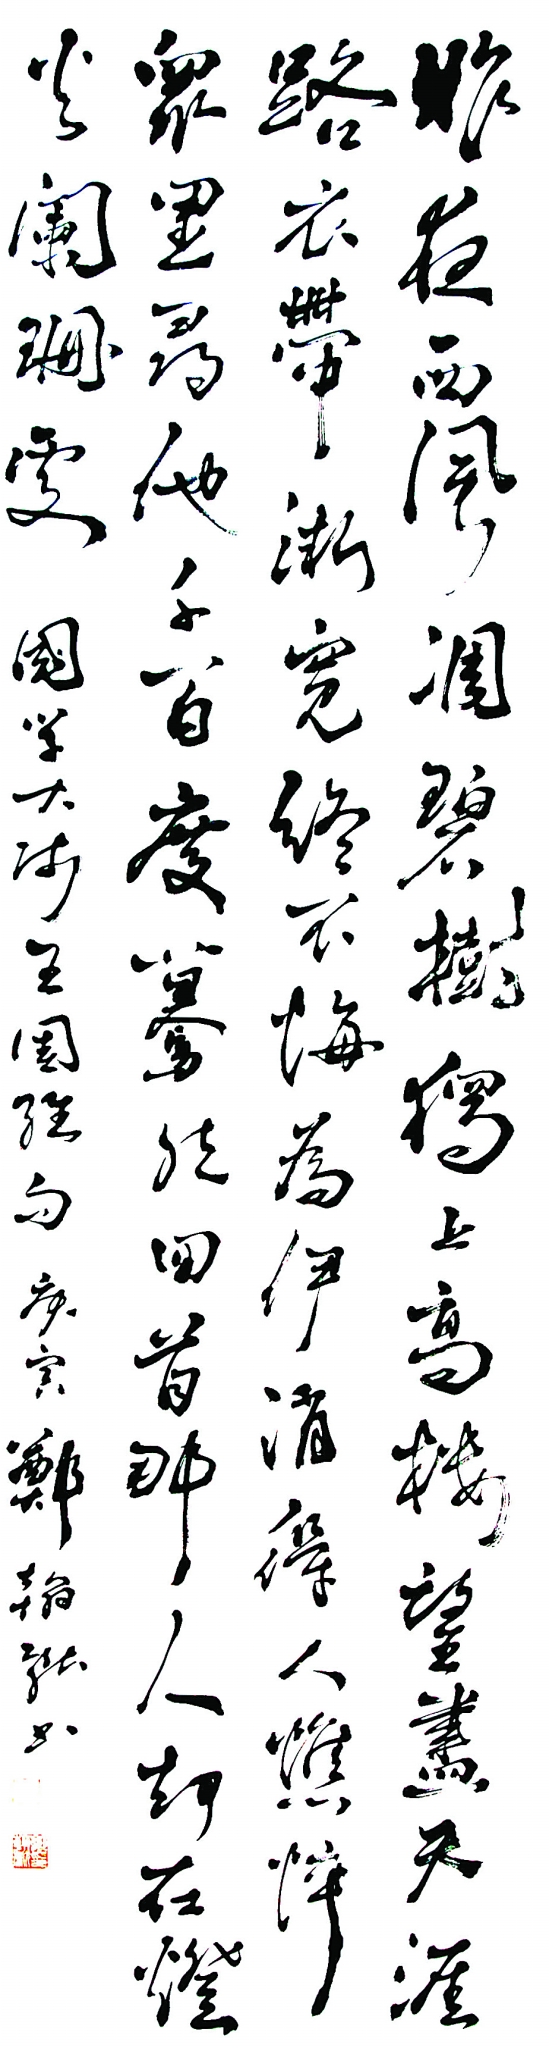 昨夜西風凋碧樹獨上高樓望盡天涯
路衣帶漸寬終不悔為伊消得人憔悴
眾里尋他千百度驀然回首那人却在燈
火闌珊處 國學大師王國維句 庚寅鄭翰獻书